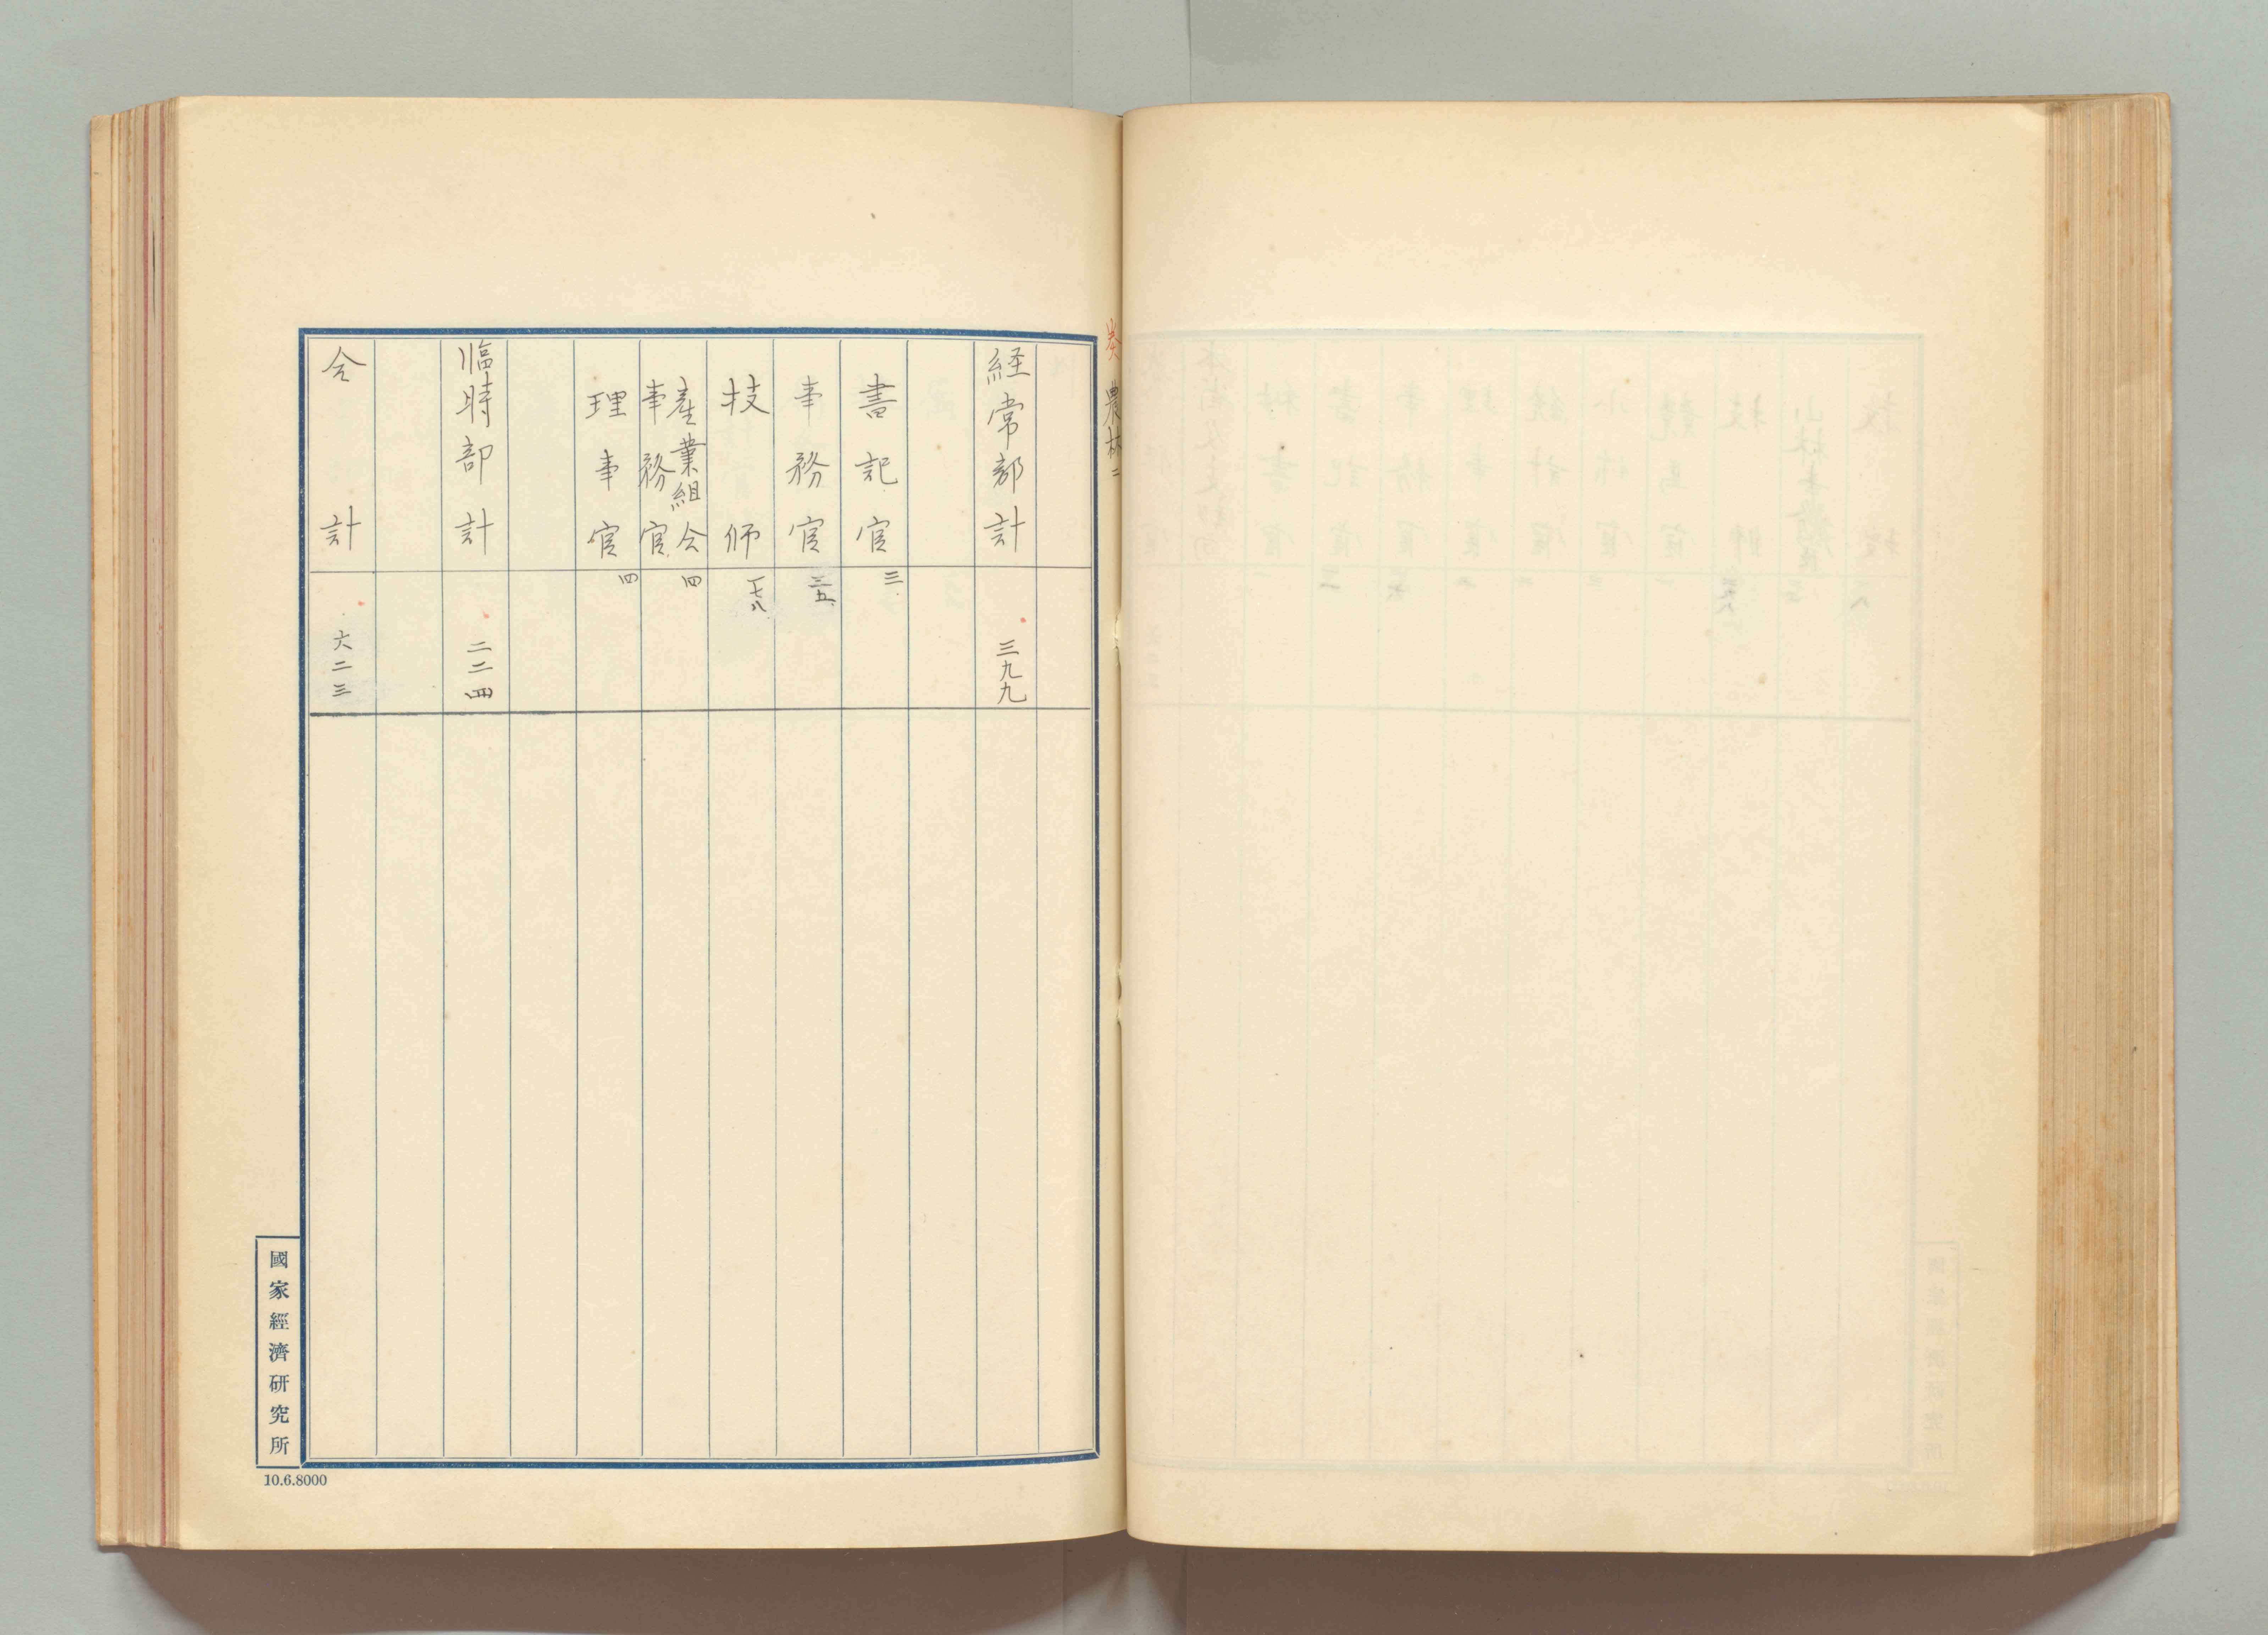 奏 農林 二
経常部計 三九九
書記官 三
事務官 三五
技師 一七八
産業組合事務官 四
理事官 四
臨時部計 二二四
合計 六二三
國家經濟研究所
10.6.8000